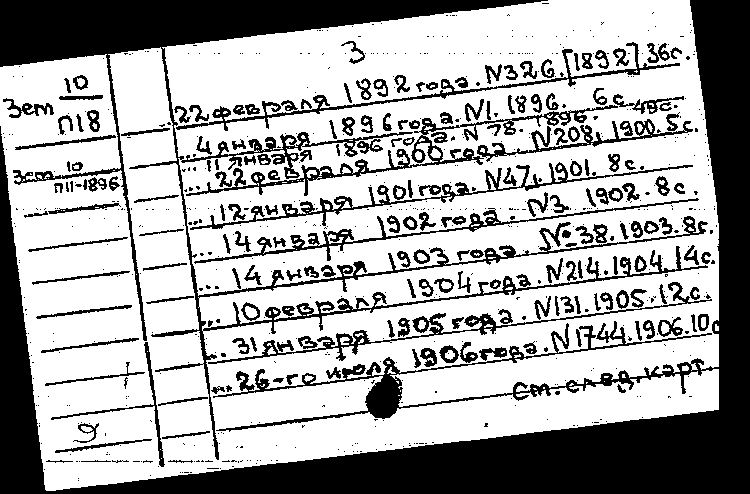 3
Зет 10
П18
...22 февраля 1892 года. N326. [1892]. 36с.
...4 января 1896 года. N1. 1896. 6с.
...11 января 1896 года. N 78. 1896. 49с.
Зет 10
П11-1896
...22 февраля 1900 года. N208, 1900. 5с.
...12 января 1901 года. N47. 1901. 8с.
...14 января 1902 года. N3. 1902. 8с.
...14 января 1903 года. №38. 1903. 8с.
...10 февраля 1904 года. N214. 1904. 14с.
...31 января 1905 года. N131. 1905. 12с.
...26-го июля 1906 года. N1744. 1906. 10с
см. след. карт.
9